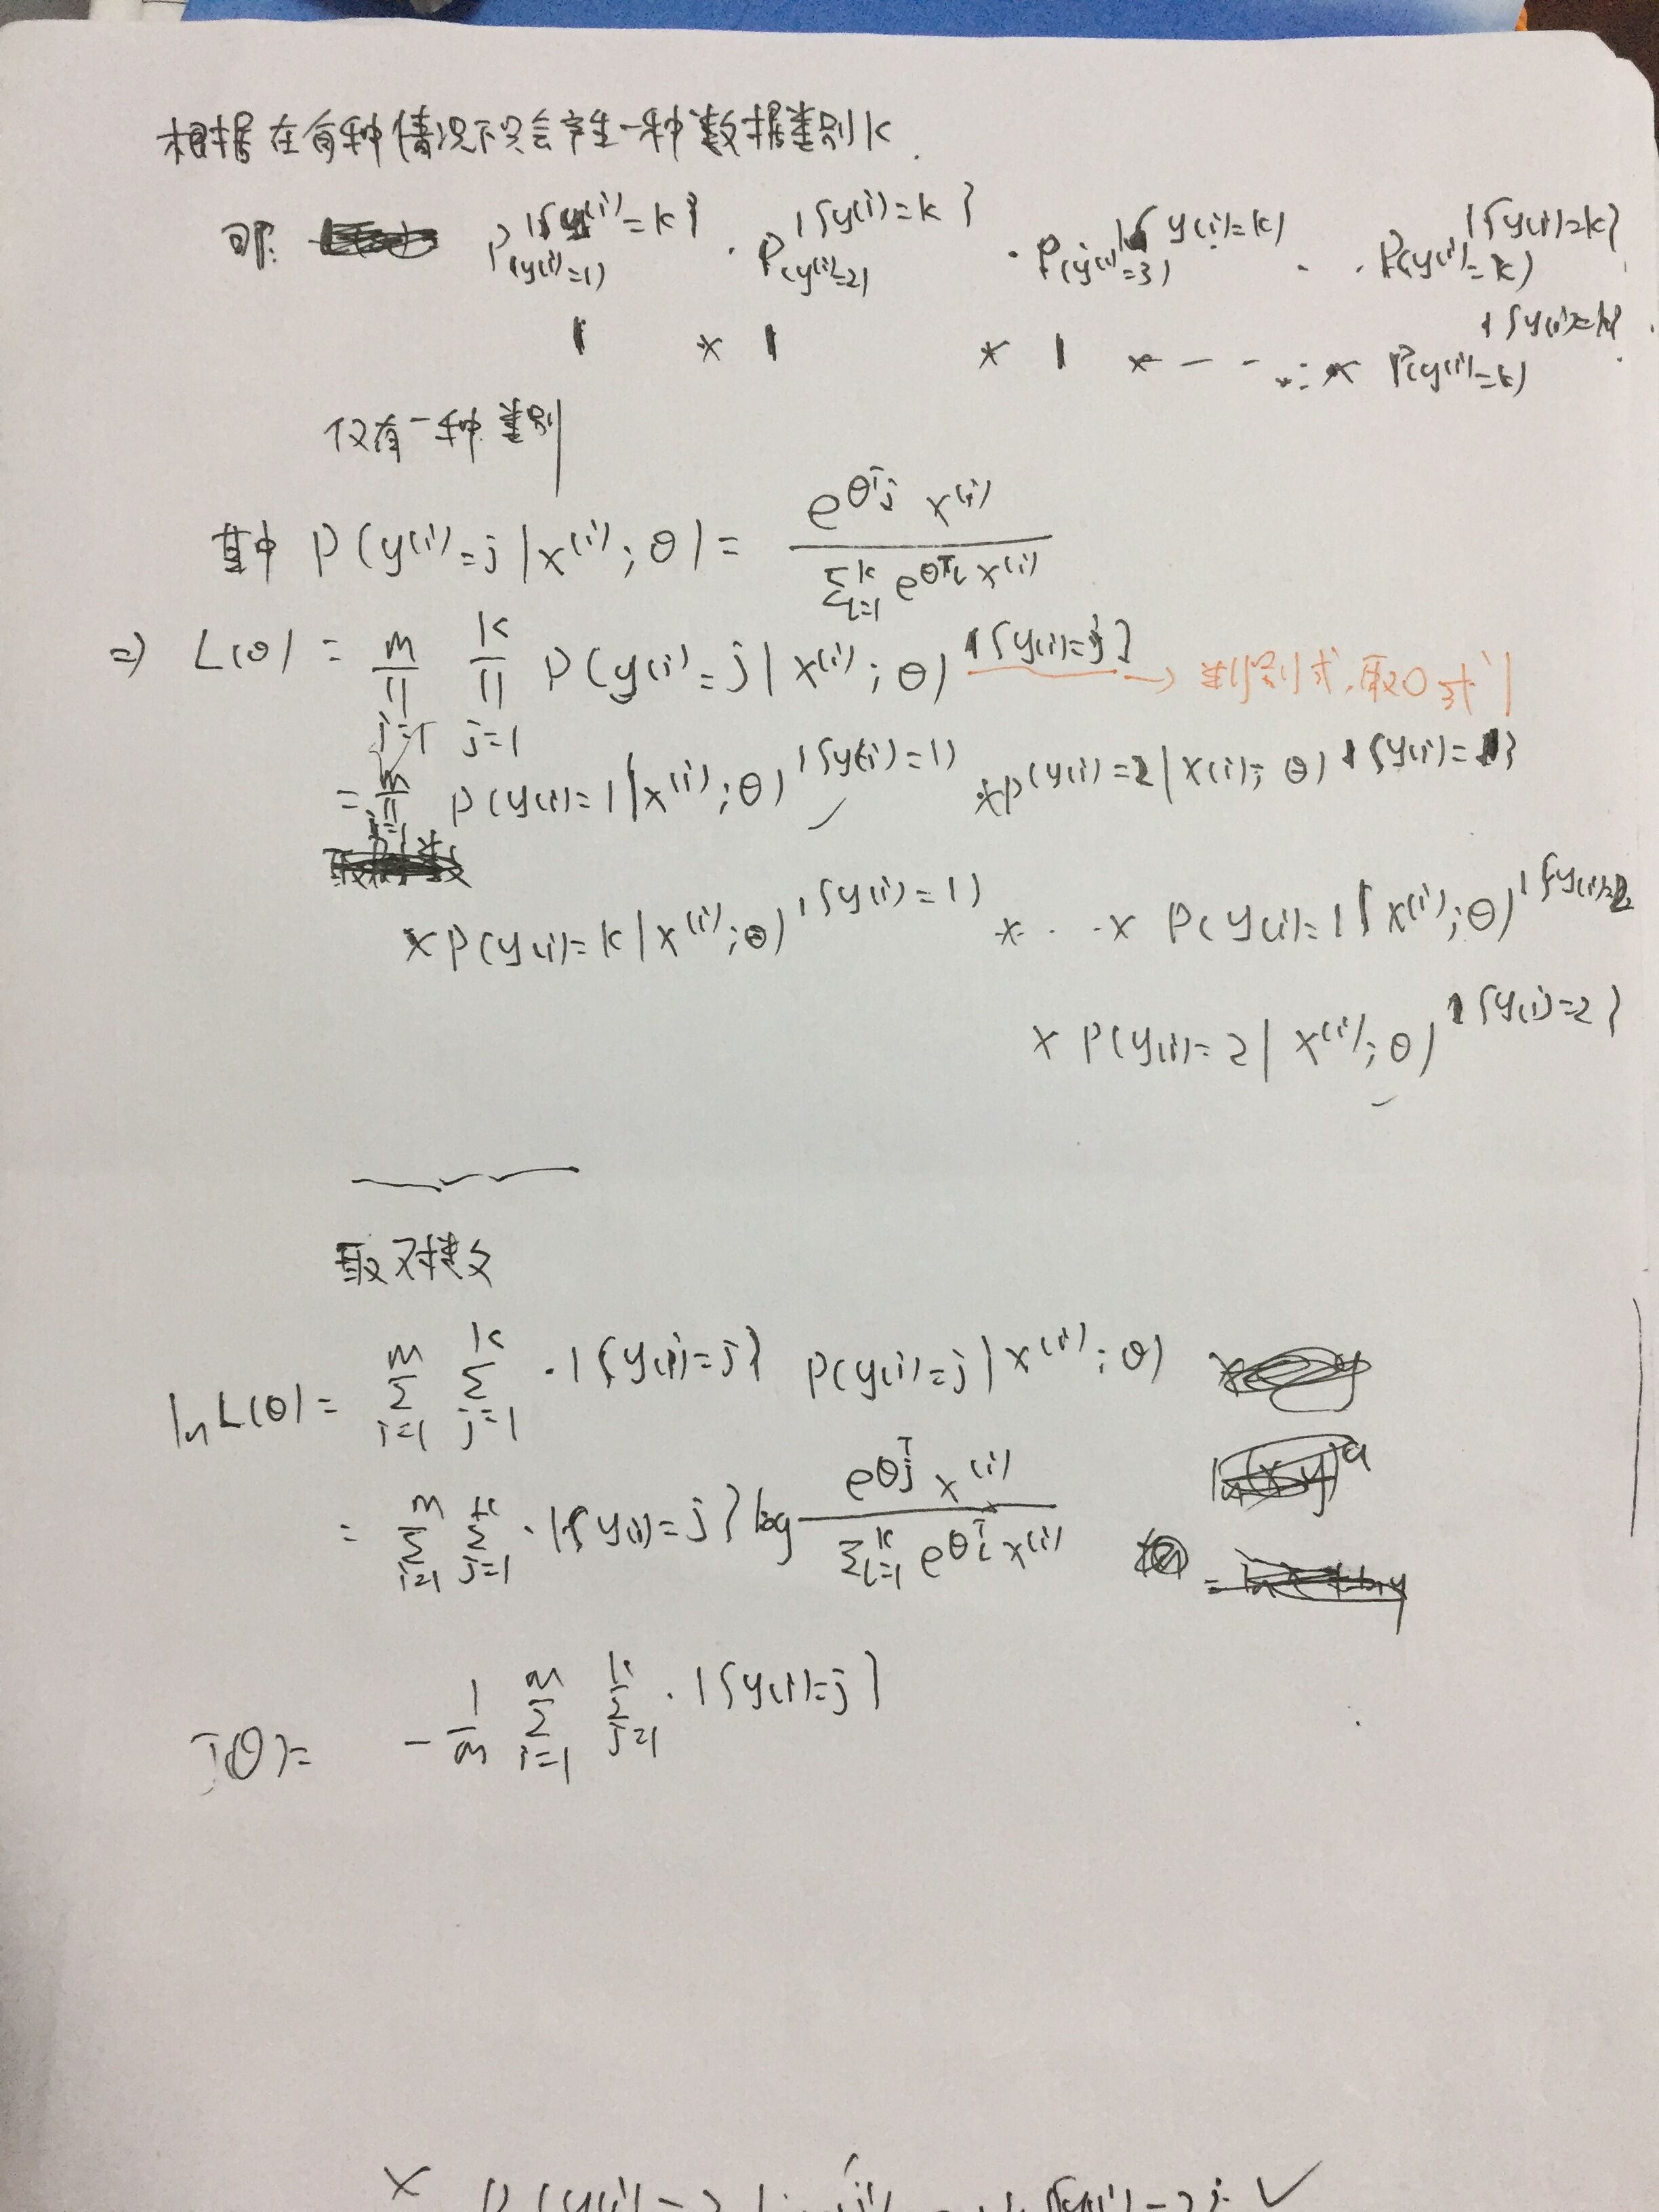 根据在有种情况下只会产生一种数据类别k.
即: P(y(i)=1)^1{y(i)=k} · P(y(i)=2)^1{y(i)=k} · P(y(i)=3)^1{y(i)=k} · · P(y(i)=k)^1{y(i)=k}
1 × 1 × 1 × - - ..: × P(y(i)=k)^1{y(i)=k}
仅有一种类别
其中 P(y(i)=j|x(i);θ) = e^θ_j^T x(i) / Σ_{l=1}^k e^θ_l^T x(i)
⇒ L(θ) = ∏_{i=1}^m ∏_{j=1}^k P(y(i)=j|x(i);θ)^1{y(i)=j} → 判别式,取0或1
= ∏_{i=1}^m P(y(i)=1|x(i);θ)^1{y(i)=1} × P(y(i)=2|x(i);θ)^1{y(i)=1}
× P(y(i)=k|x(i);θ)^1{y(i)=1} × · · × P(y(i)=1|x(i);θ)^1{y(i)=2
× P(y(i)=2|x(i);θ)^1{y(i)=2}
取对数
ln L(θ) = Σ_{i=1}^m Σ_{j=1}^k · 1{y(i)=j} P(y(i)=j|x(i);θ)
= Σ_{i=1}^m Σ_{j=1}^k · 1{y(i)=j} log e^θ_j^T x(i) / Σ_{l=1}^k e^θ_l^T x(i)
J(θ) = - 1/m Σ_{i=1}^m Σ_{j=1}^k · 1{y(i)=j}